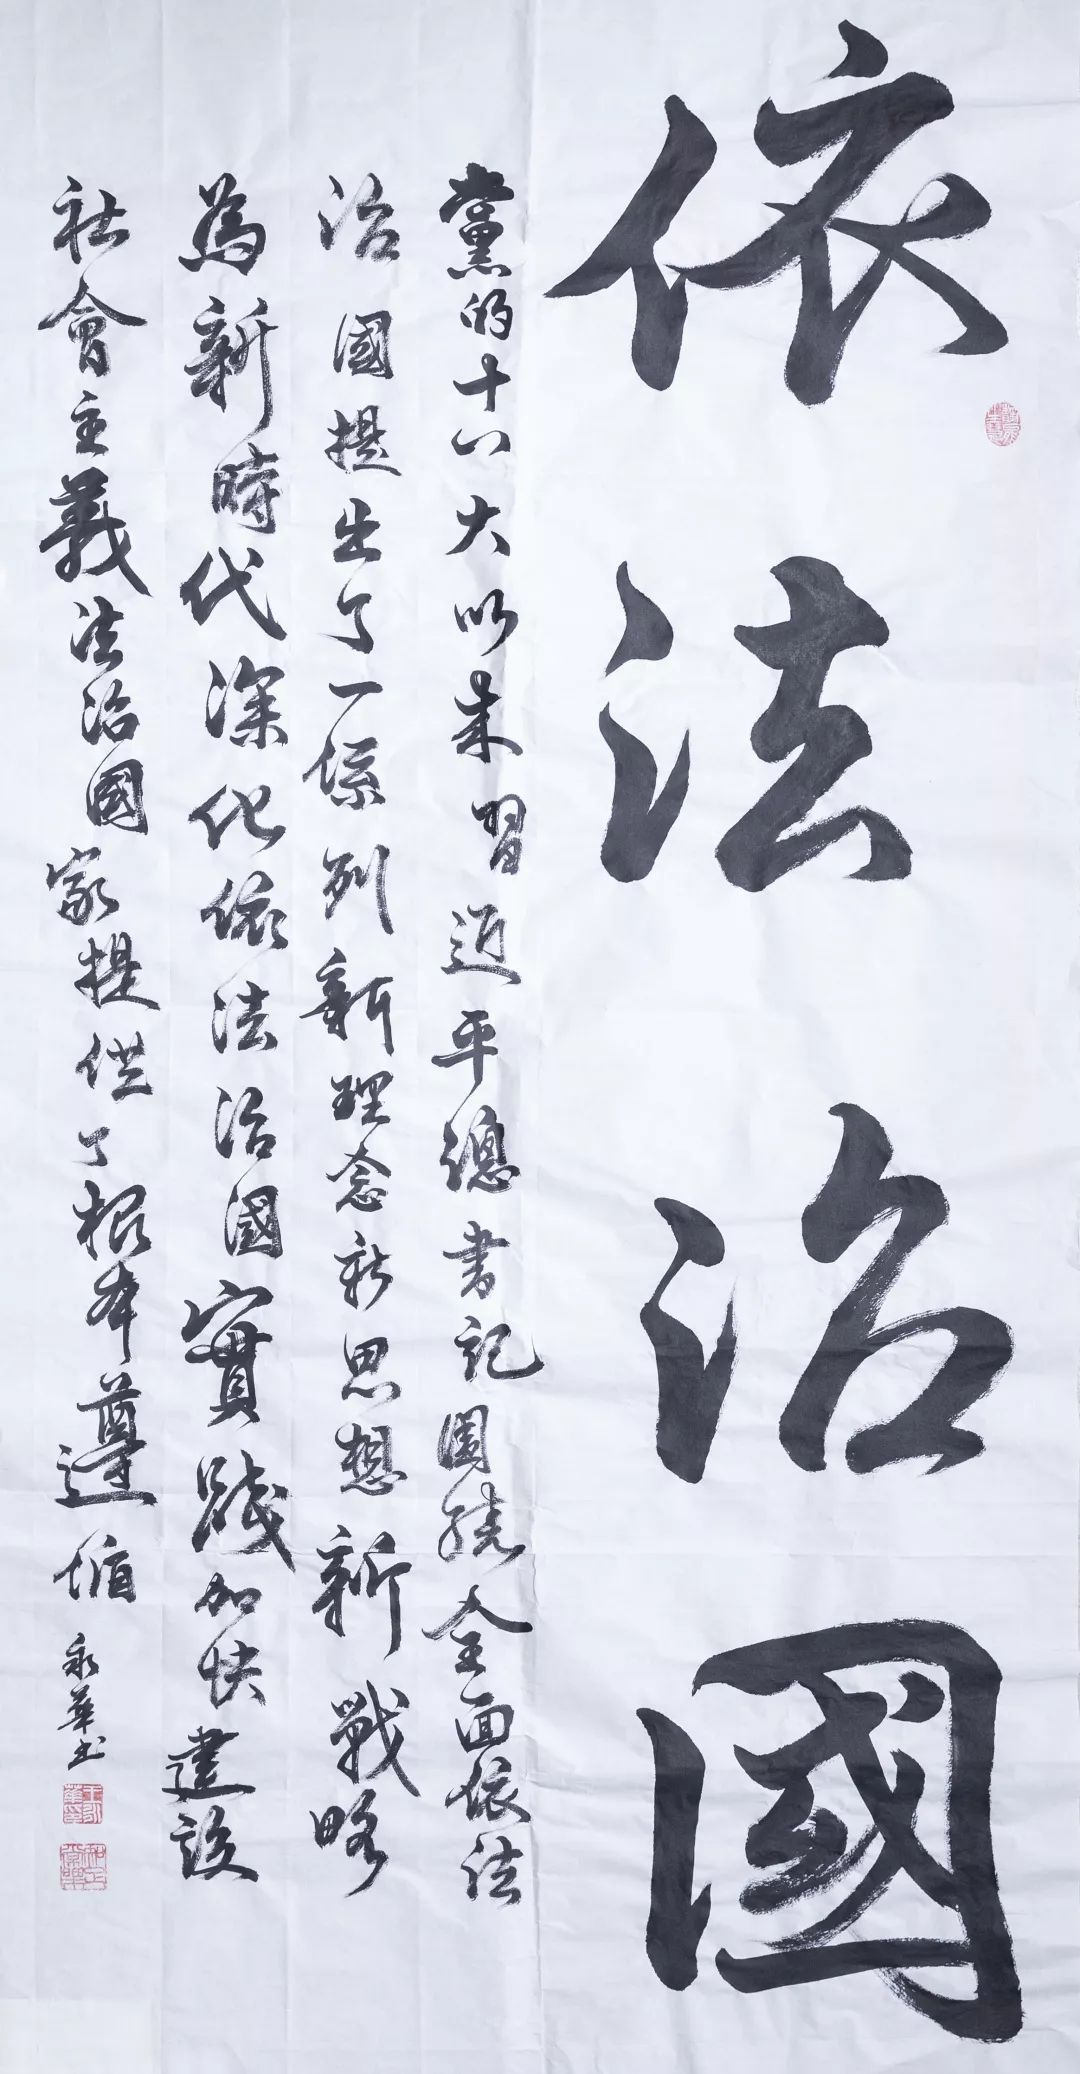 依法治國
黨的十八大以来習近平總書記圍繞全面依法
治國提出了一係列新理念新思想新戰略
為新時代深化依法治國實踐加快建設
社會主義法治國家提供了根本遵循
永華书